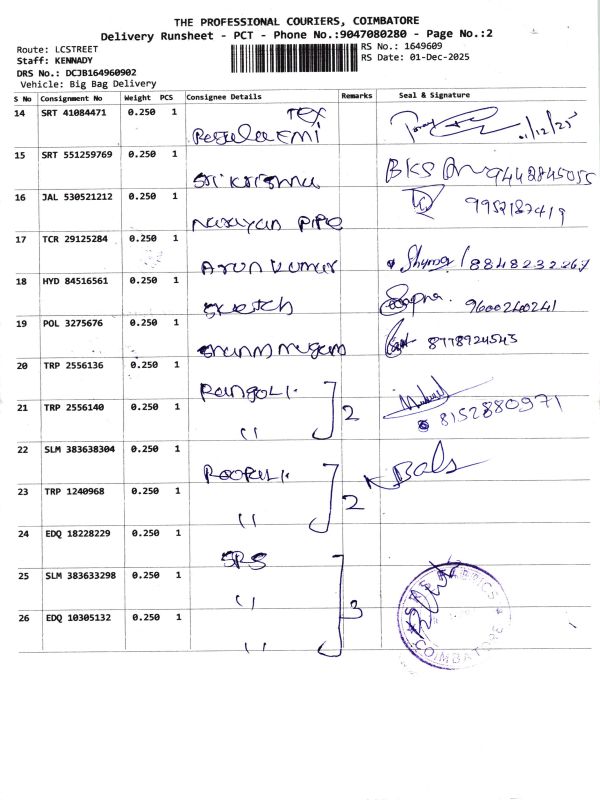 THE PROFESSIONAL COURIERS, COIMBATORE
Delivery Runsheet - PCT - Phone No.:9047080280 - Page No.:2
Route: LCSTREET
Staff: KENNADY
DRS No.: DCJB164960902
Vehicle: Big Bag Delivery
RS No.: 1649609
RS Date: 01-Dec-2025
S No Consignment No Weight PCS Consignee Details Remarks Seal & Signature
14 SRT 41084471 0.250 1 Tex 01/12/25
15 SRT 551259769 0.250 1 Sri Krishna BKS 9442845055
16 JAL 530521212 0.250 1 Narayan Pipe 9952187419
17 TCR 29125284 0.250 1 Arun Kumar Shyma / 8848232267
18 HYD 84516561 0.250 1 Sketch Sapna. 9600240241
19 POL 3275676 0.250 1 Shanmugam 8778924545
20 TRP 2556136 0.250 1 Rangoli.
21 TRP 2556140 0.250 1 " 2 8152880971
22 SLM 383638304 0.250 1 Roopali. Bals
23 TRP 1240968 0.250 1 " 2
24 EDQ 18228229 0.250 1 SRS
25 SLM 383633298 0.250 1 " 3
26 EDQ 10305132 0.250 1 "
FABRICS
COIMBATORE